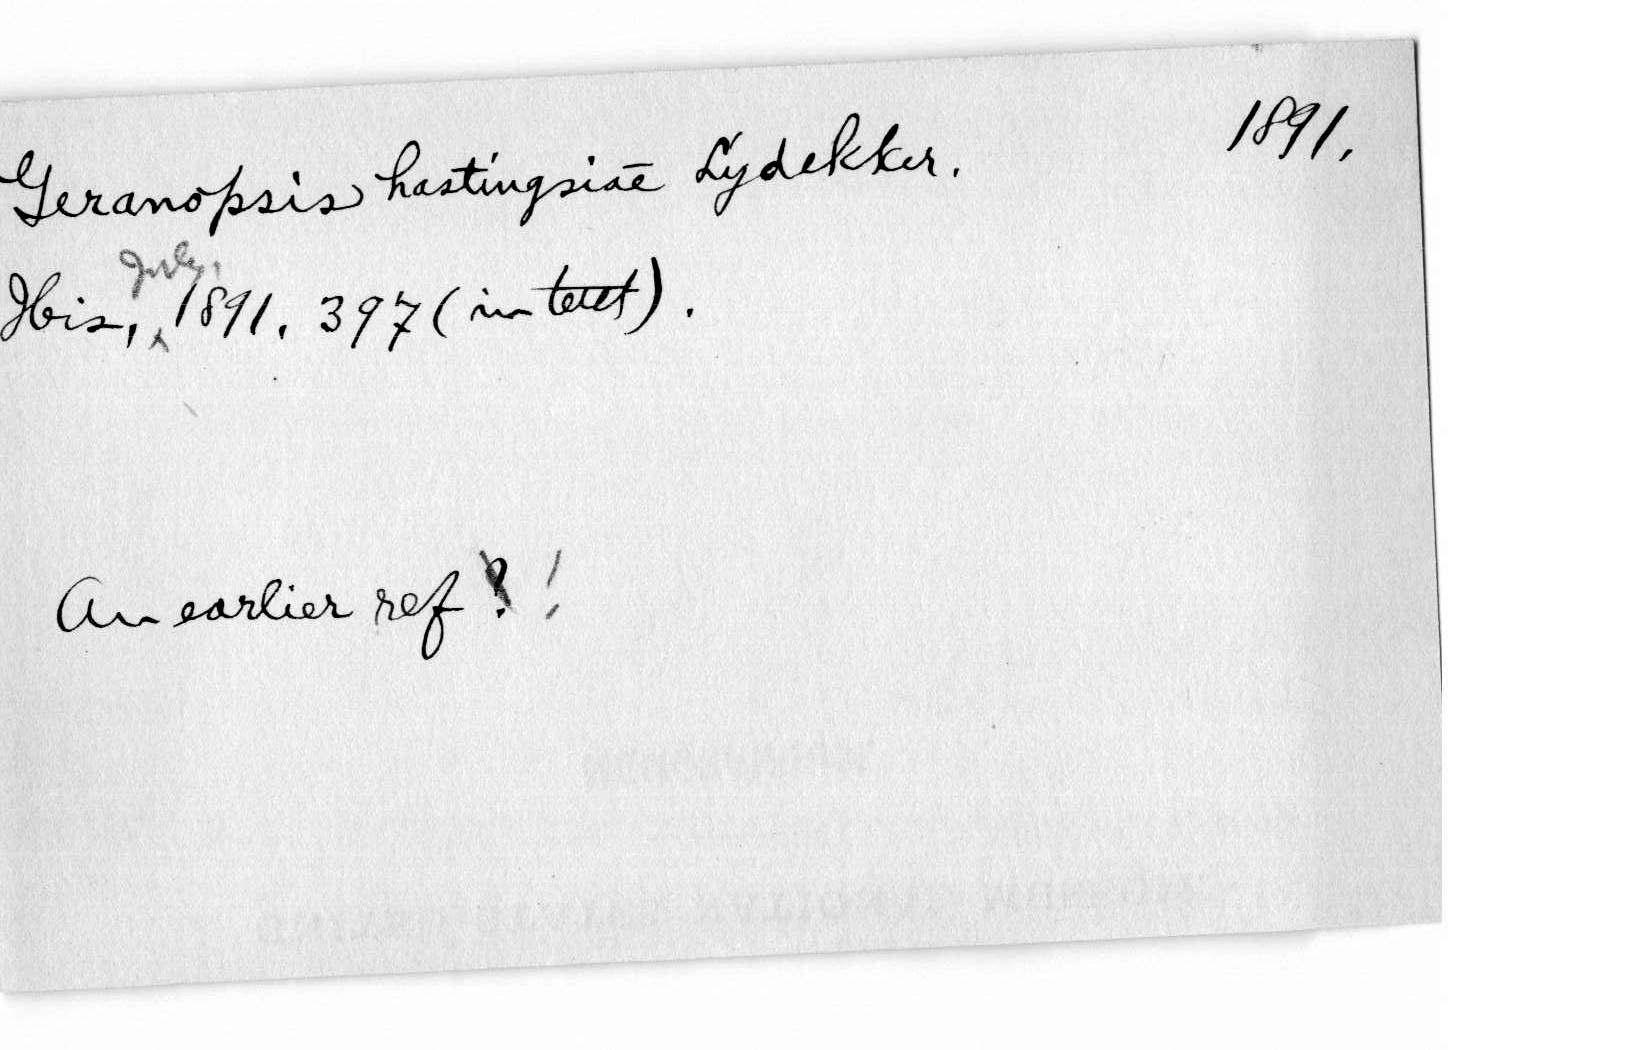 1891.
Geranopsis hastingsiae Lydekker.
Ibis, July, 1891, 397 (in text).
An earlier ref ? !